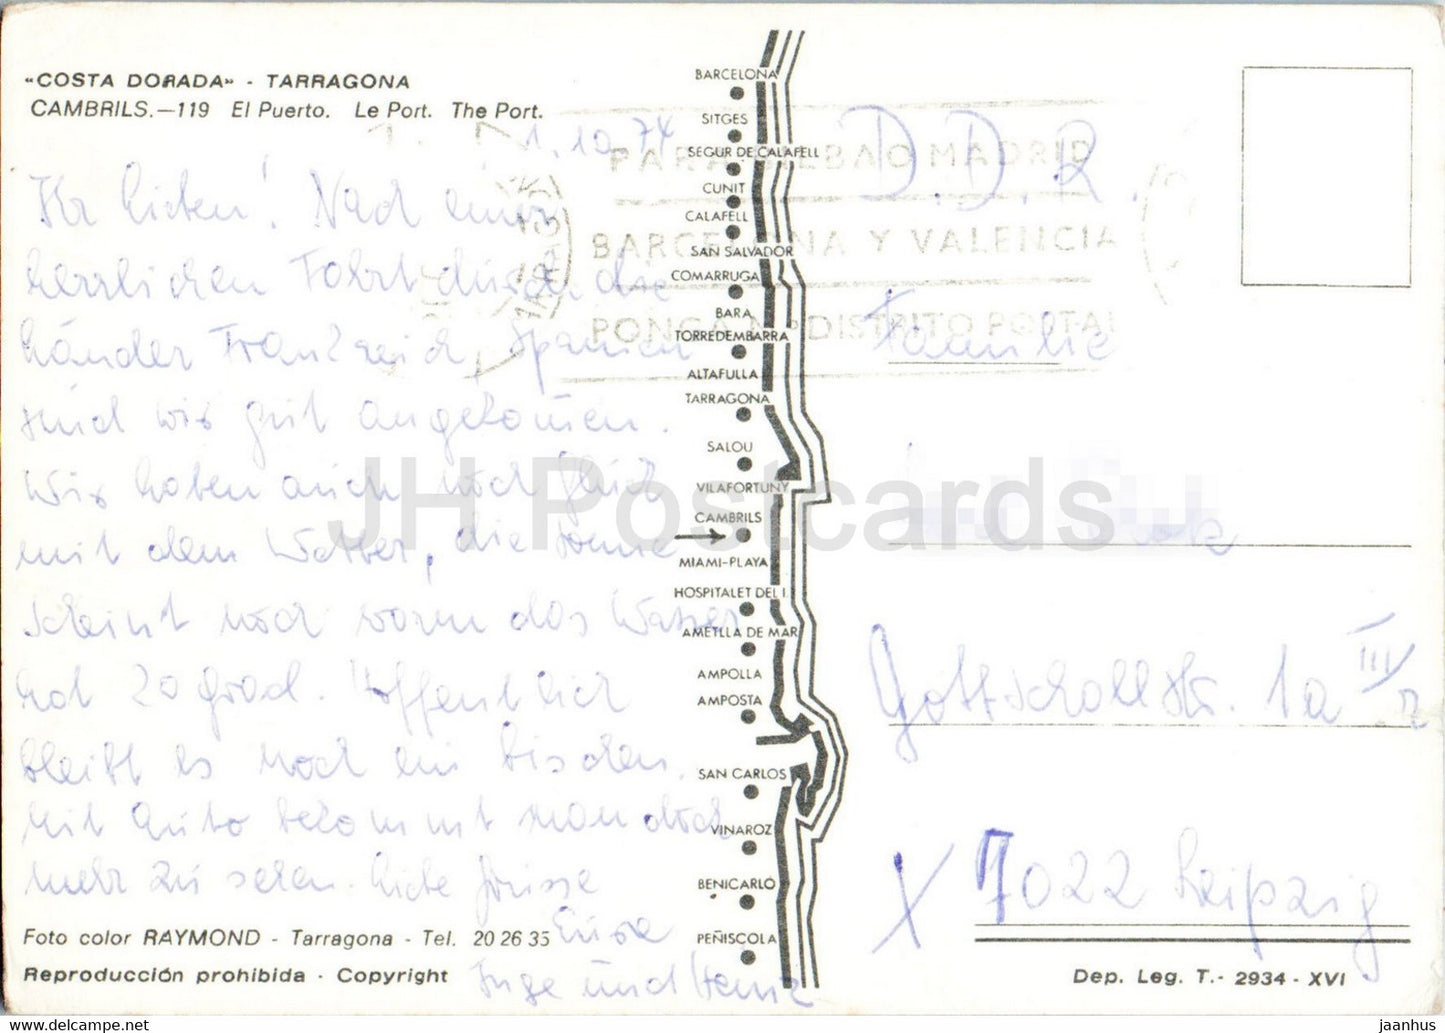 «COSTA DORADA» - TARRAGONA
CAMBRILS.—119 El Puerto. Le Port. The Port.
1.10.74
Ihr Lieben! Nach einer
herrlichen Fahrt durch die
Länder Frankreich, Spanien
sind wir gut angekom̄en.
Wir haben auch noch Glück
mit dem Wetter, die Sonne
scheint noch warm das Wasser
hat 20 Grad. Hoffentlich
bleibt es noch ein bischen.
Mit Auto bekommt man doch
mehr zu sehen. Liebe Grüsse
Eure
Inge und Heinz
Foto color RAYMOND - Tarragona - Tel. 20 26 35
Reproducción prohibida - Copyright
BARCELONA
SITGES
SEGUR DE CALAFELL
CUNIT
CALAFELL
SAN SALVADOR
COMARRUGA
BARA
TORREDEMBARRA
ALTAFULLA
TARRAGONA
SALOU
VILAFORTUNY
CAMBRILS
MIAMI-PLAYA
HOSPITALET DEL I.
AMETLLA DE MAR
AMPOLLA
AMPOSTA
SAN CARLOS
VINAROZ
BENICARLÓ
PEÑISCOLA
PARA BILBAO MADRID
BARCELONA Y VALENCIA
PONGA Nº DISTRITO POSTAL
D.D.R.
Familie
Gottschallstr. 1a III/r
X 7022 Leipzig
Dep. Leg. T. - 2934 - XVI
JH Postcards
jaanhus.com